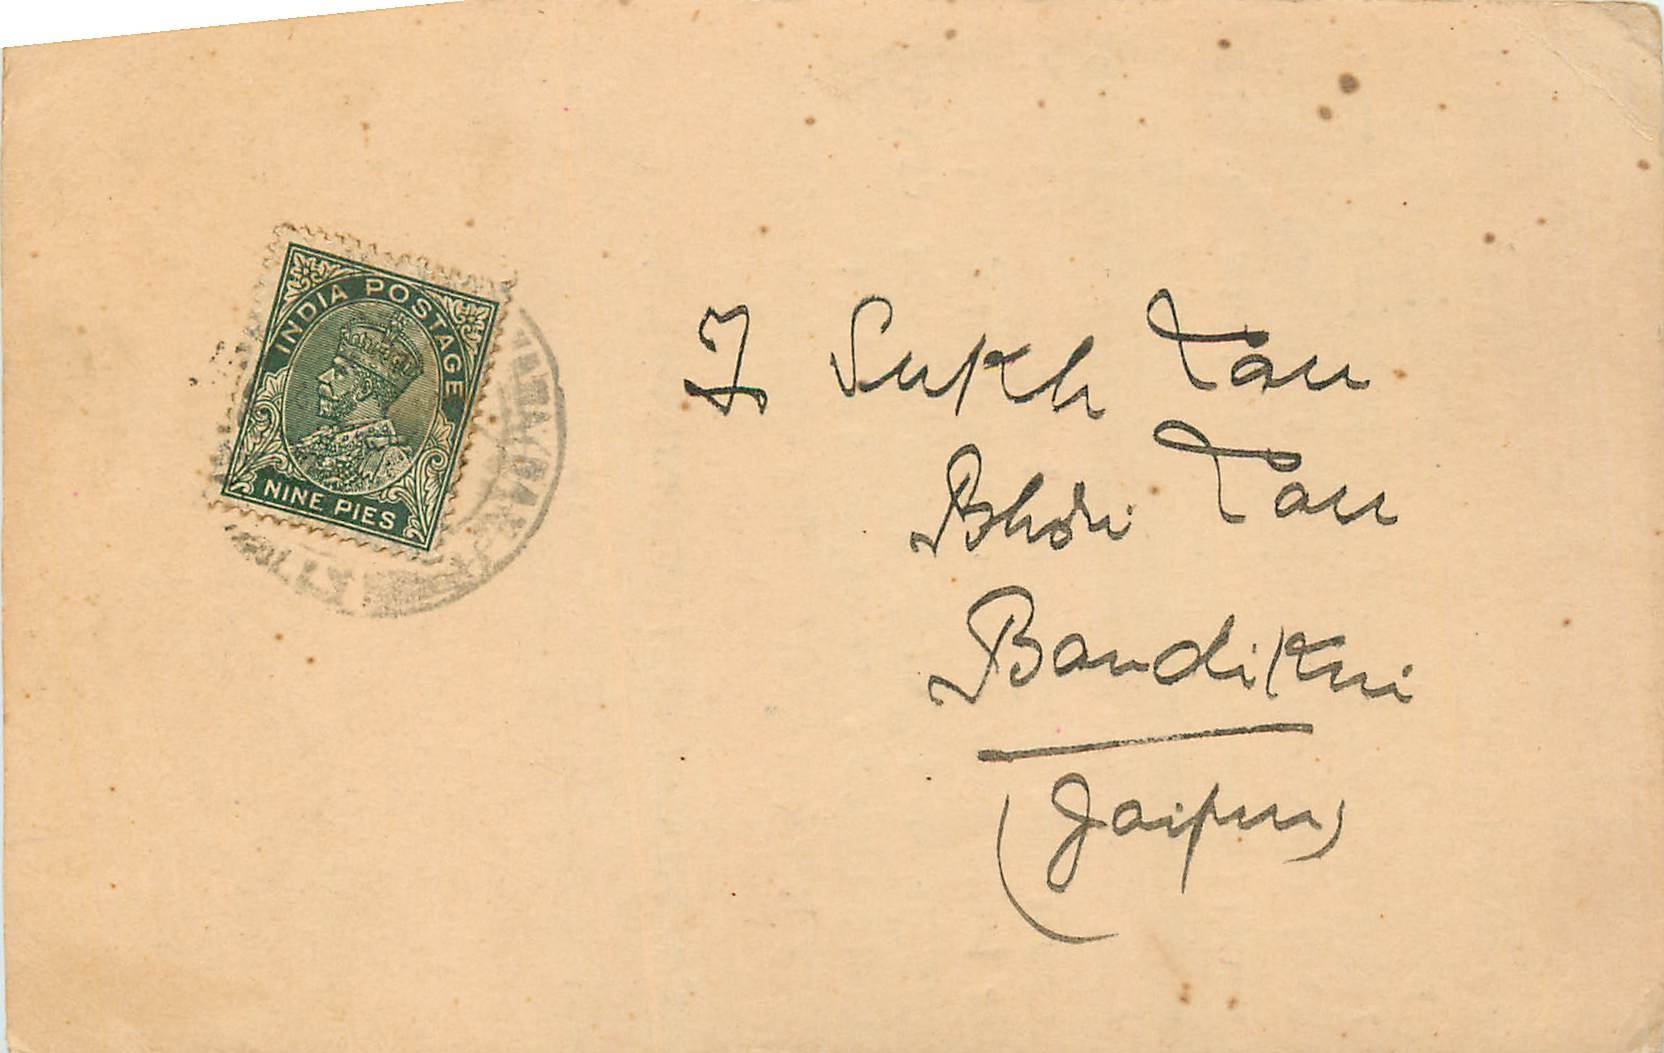 INDIA POSTAGE
NINE PIES
J Sukh Lau
Bhori Lau
Bandikui
(Jaipur)